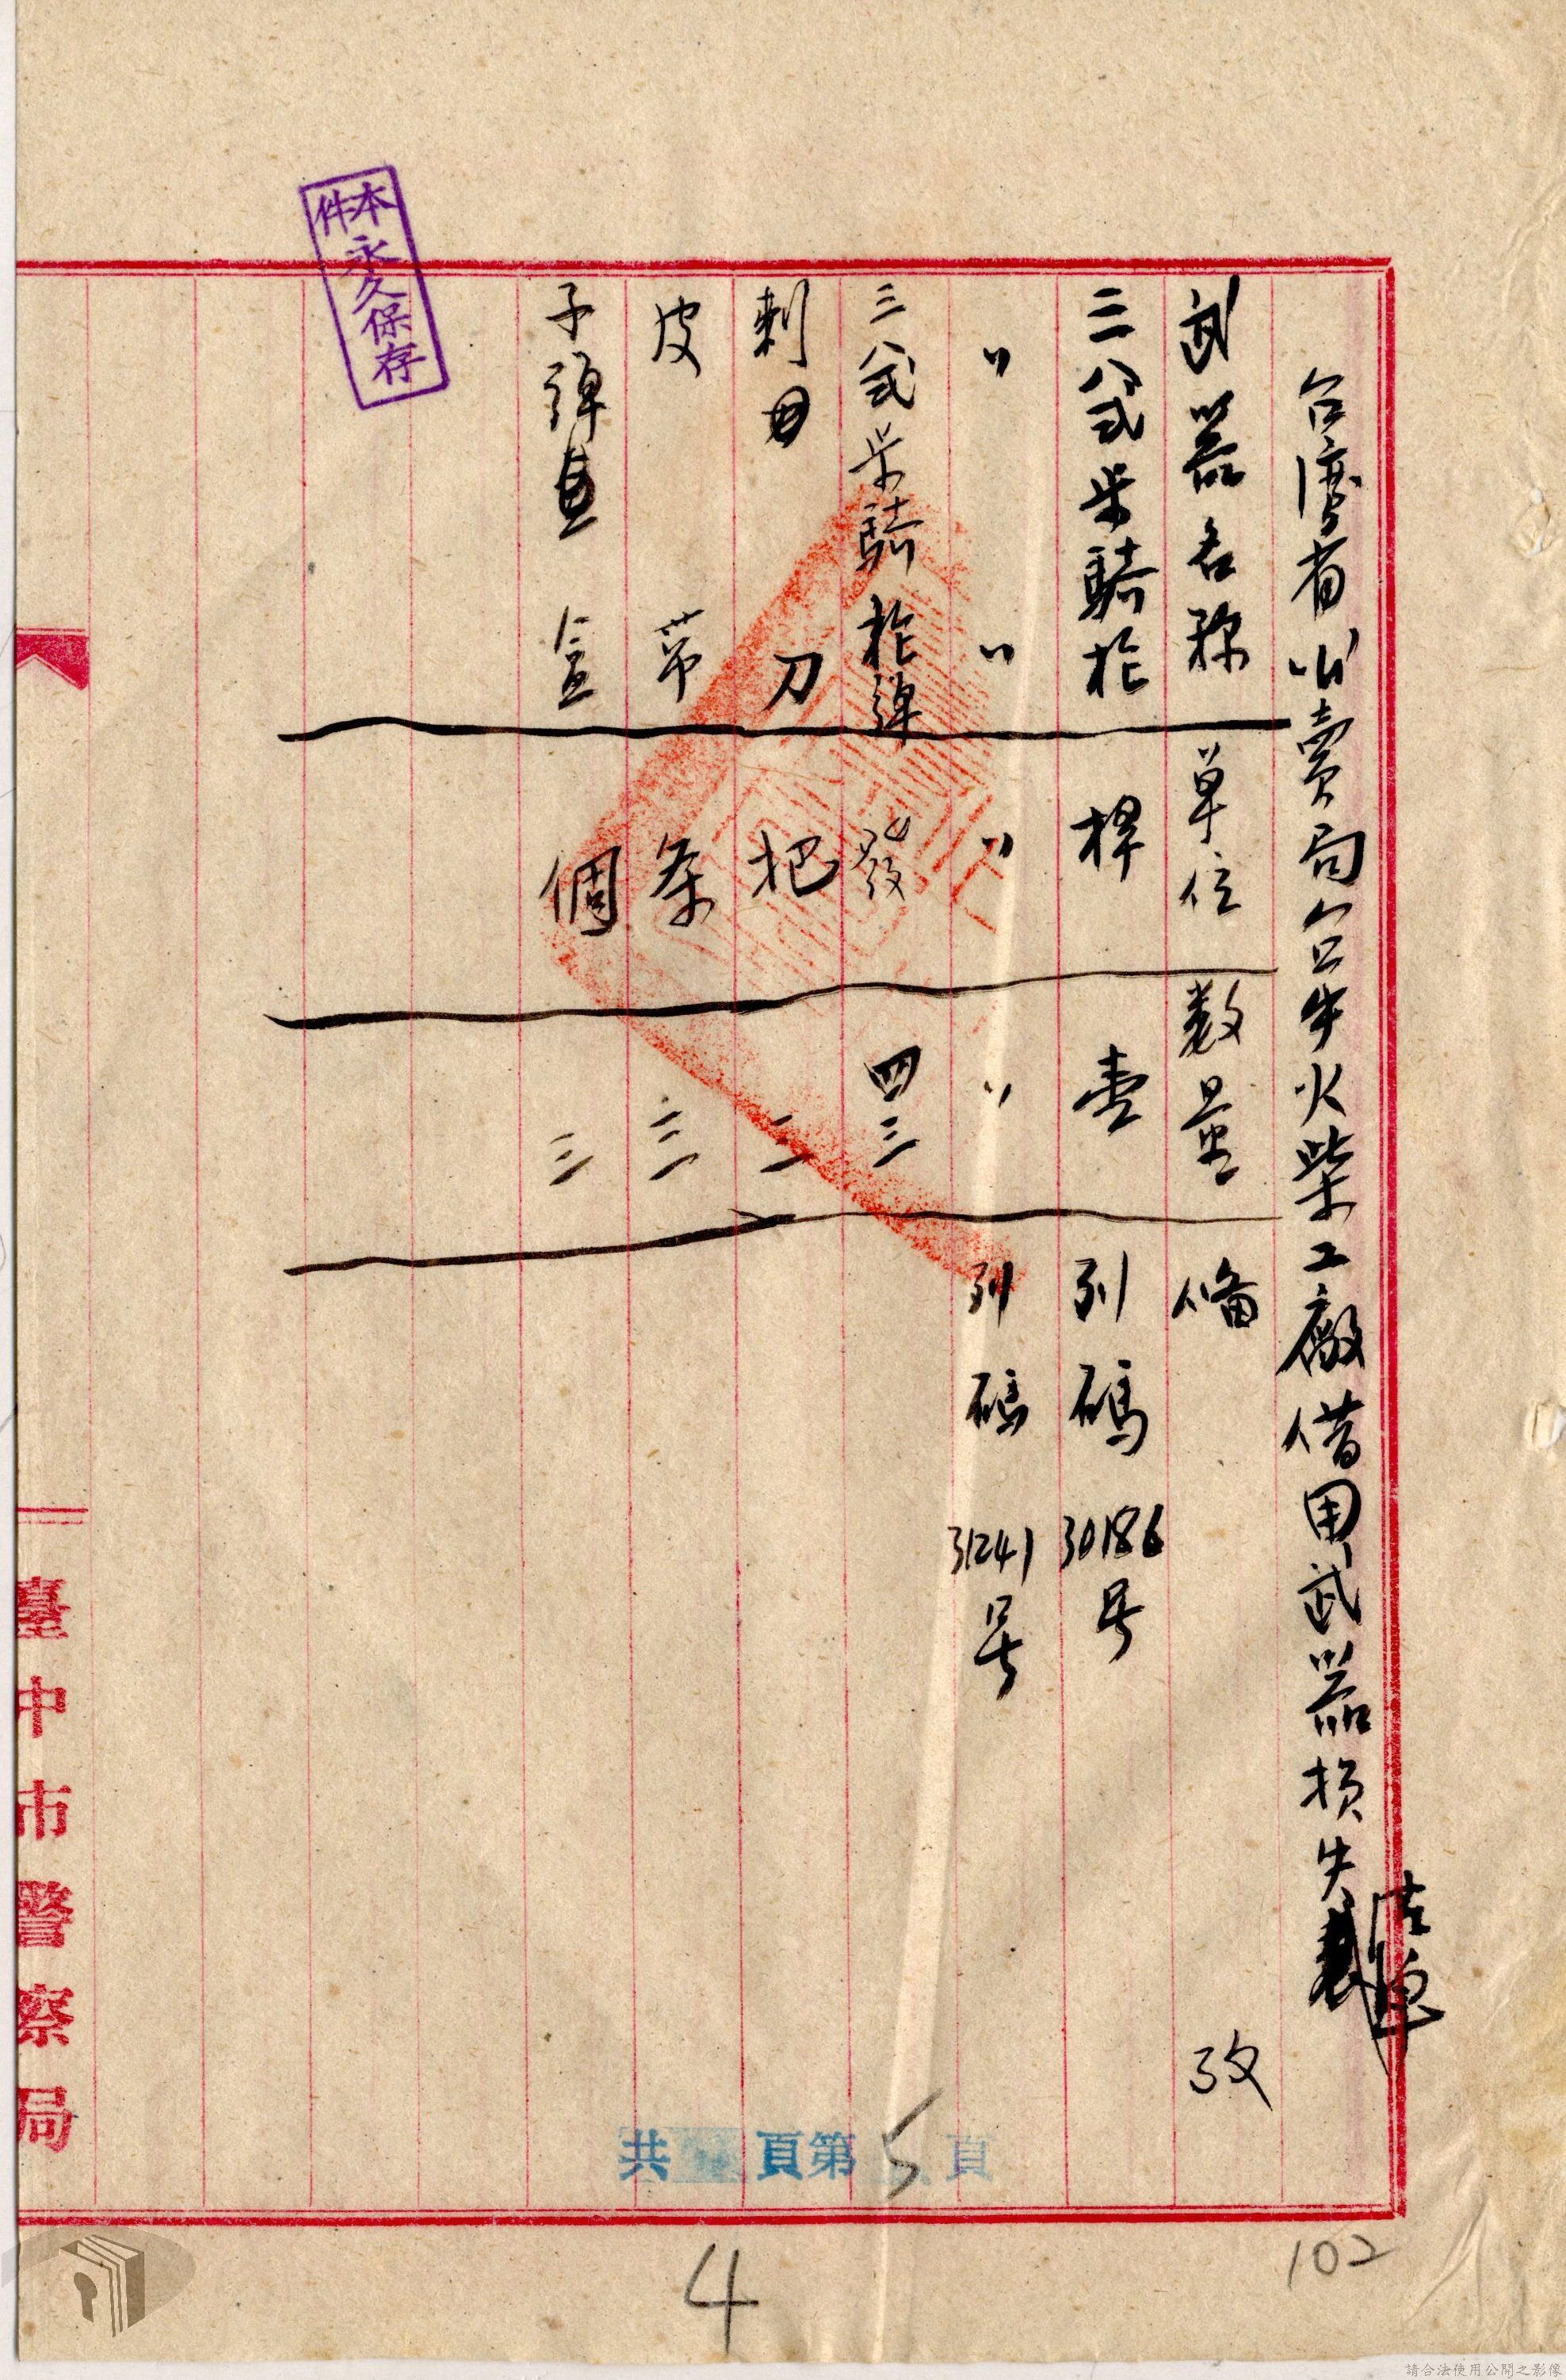 台灣省公賣局台中火柴工廠借用武器損失
清單
武器名称 单位 数量 备 攷
三八式步騎枪 桿 壹 列碼 30186 号
〃 〃 〃 〃 列碼 31241 号
三八式步騎枪彈 發 四三
刺刀 把 二
皮帶 条 三
子彈盒 個 三
本件永久保存
臺中市警察局
共 頁第5頁
4
102
請合法使用公開之影像